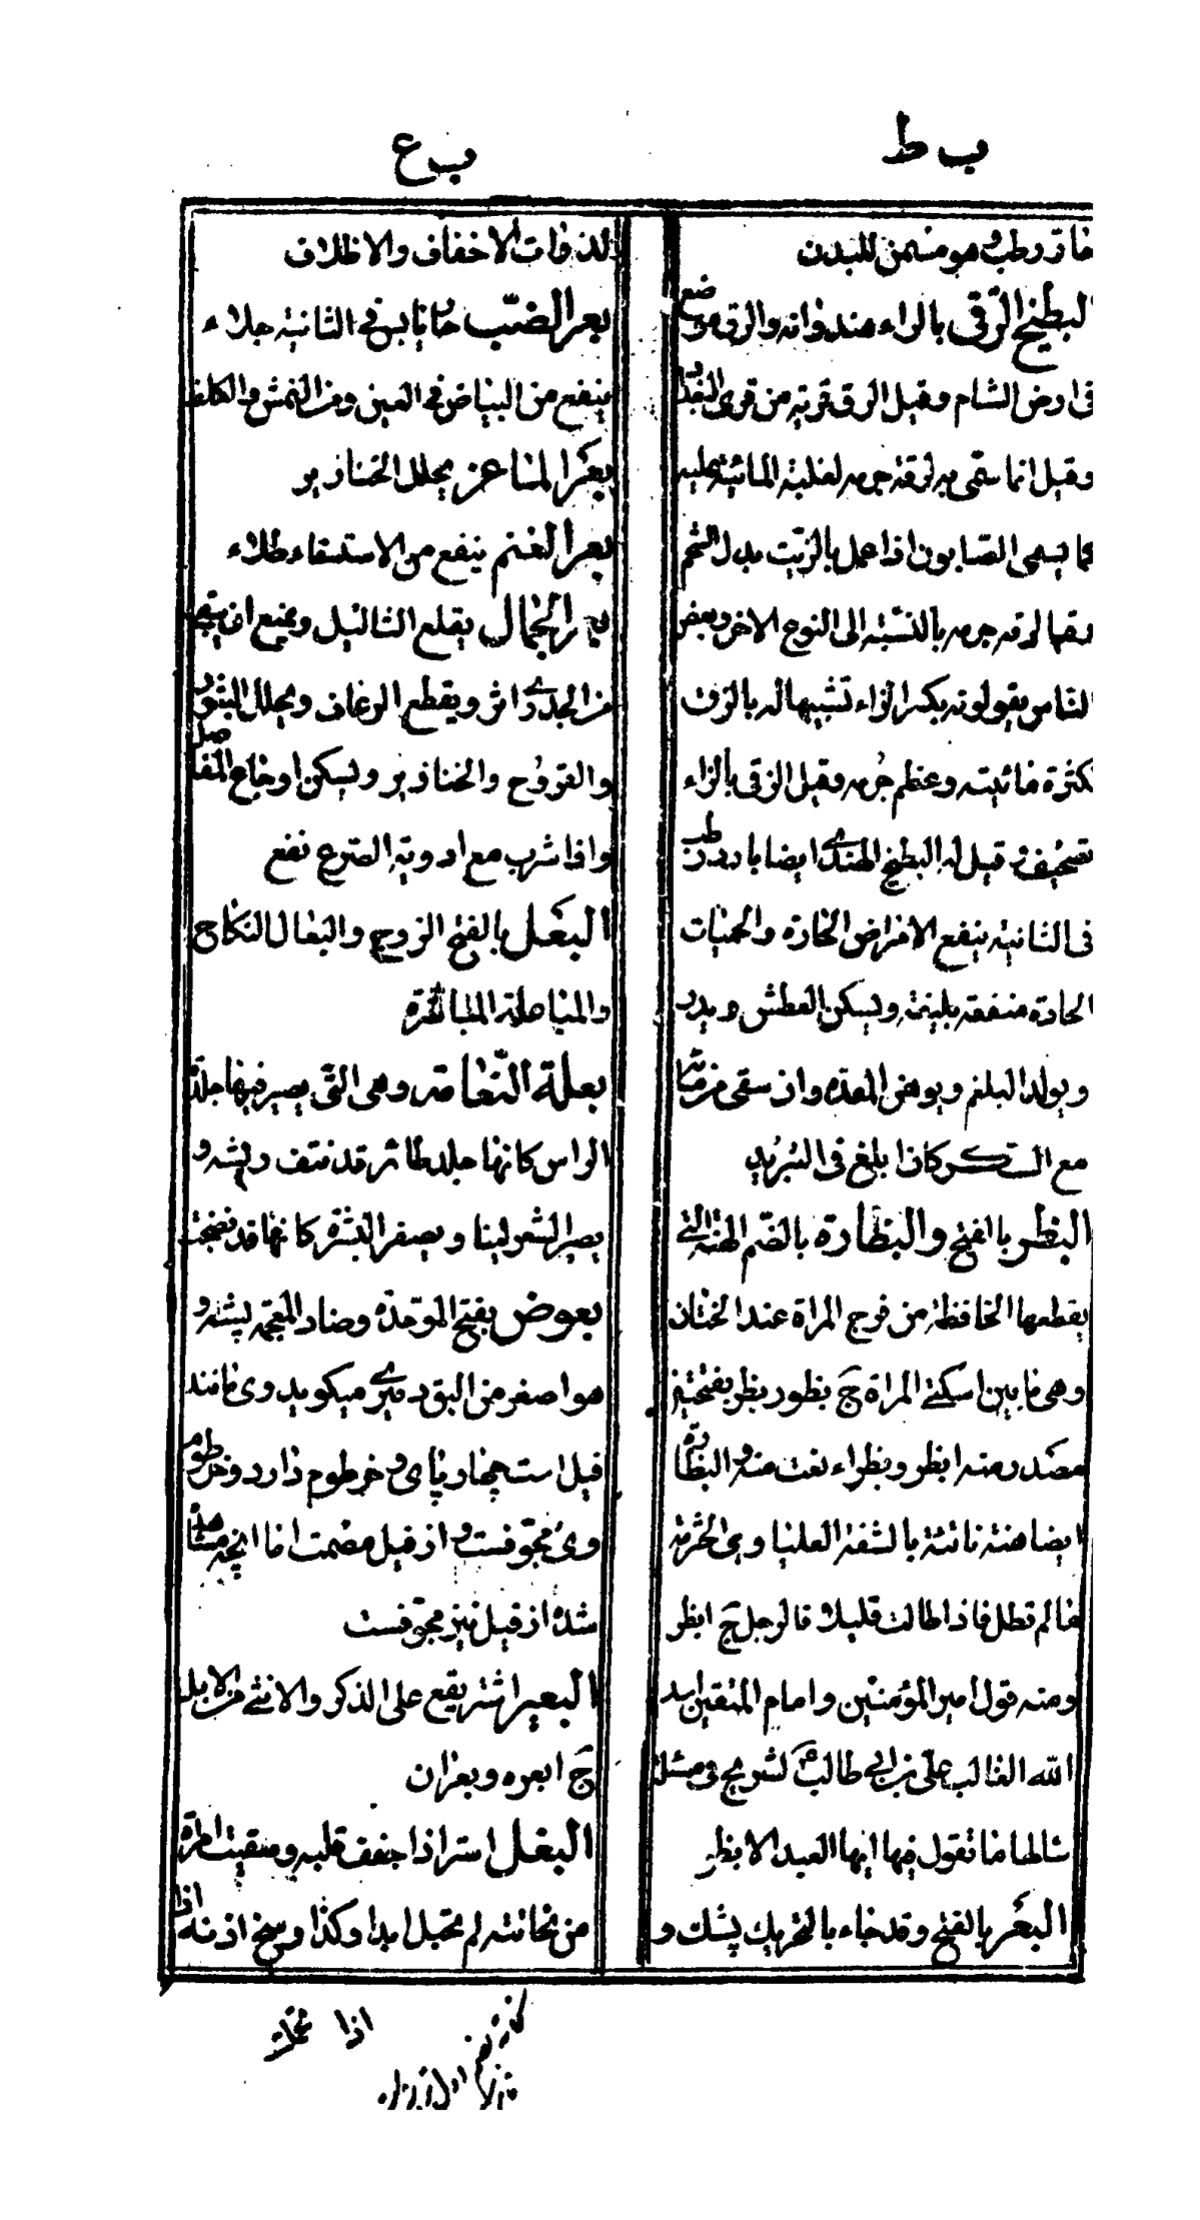 ب ط
حار رطب وهو مسمن للبدن
البطيخ الرقى بالراء هندوانه والرق موضع
فى ارض الشام وقيل الرق قرية من قرى البغداد
وقيل انما سمى به لرقة جرمه لغلبة المائية عليه
كما يسمى الصابون اذا عمل بالزيت بدل الشحم
رقيا لرقة جرمه بالنسبة الى النوع الاخر وبعض
الناس يقولونه بكسر الزاء تشبيها له بالزق
لكثرة مائيته وعظم جرمه وقيل الزقى بالزاء
تصحيف وقيل له البطيخ الهندى ايضا بارد رطب
فى الثانية ينفع الامراض الحارة والحميات
الحادة منفعة بلينة ويسكن العطش ويدر
ويولد البلغم ويوهن المعدة وان سقى من مائه
مع السكر كان ابلغ فى التبريد
البظر بالفتح والبظارة بالضم الهنة التى
يقطعها الخافظة من فرج المراة عند الختان
وهى ما بين اسكتى المراة ج بظور بظر بفتحتين
مصدر منه ابظر وبظراء نعت منه والبظارة
ايضا هنة ناتئة بالشفة العليا وهى الحثرمة
مالم تطل فاذا طالت قليلا فالرجل ج ابظر
ومنه قول امير المؤمنين وامام المتقين اسد
الله الغالب على بن ابى طالب ع لشريح فى مسئلة
سالها ما تقول فيها ايها العبد الابظر
البعر بالفتح وقد جاء بالتحريك پشك و
ب ع
لذوات الاخفاف والاظلاف
بعر الضب حار يابس فى الثانية جلاء
ينفع من البياض فى العين ومن النمش والكلف
بعر الماعز يحلل الخنازير
بعر الغنم ينفع من الاستسقاء طلاء
بعار الجمال يقلع الثاليل ويمنع ان يبقى
من الجدرى اثر ويقطع الرعاف ويحلل البثور
والقروح والخنازير ويسكن اوجاع المفاصل
واذا شرب مع ادوية الصرع نفع
البعل بالفتح الزوج والبعال النكاح
والمباعلة المباشرة
بعلة النعامة وهى التى يصير فيها جلدة
الراس كانها جلد طائر قد نتف ريشه و
يصير الشعر لينا ويصفر البشرة كانها قد نضجت
بعوض بفتح الموحدة وضاد المعجمه پشه و
هو اصغر من البق دميرى ميكويد وى مانند
فيل است چهار پاى و خرطوم دارد وخرطوم
وى مجوفست و از فيل مصمت اما انچه مشاهده
شده از فيل نيز مجوفست
البعير اشتر يقع على الذكر والانثى من الابل
ج ابعره وبعران
البغل استر اذا جفف قلبه وسقيت امراة
من نحاتته لم تحبل ابدا وكذا وسخ اذنه اذا
اذا